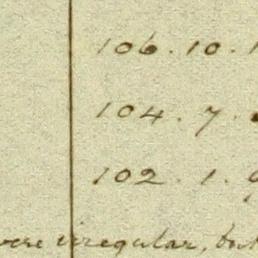 106 . 10 .
104 . 7 .
102 . 1 .
were irregular, but